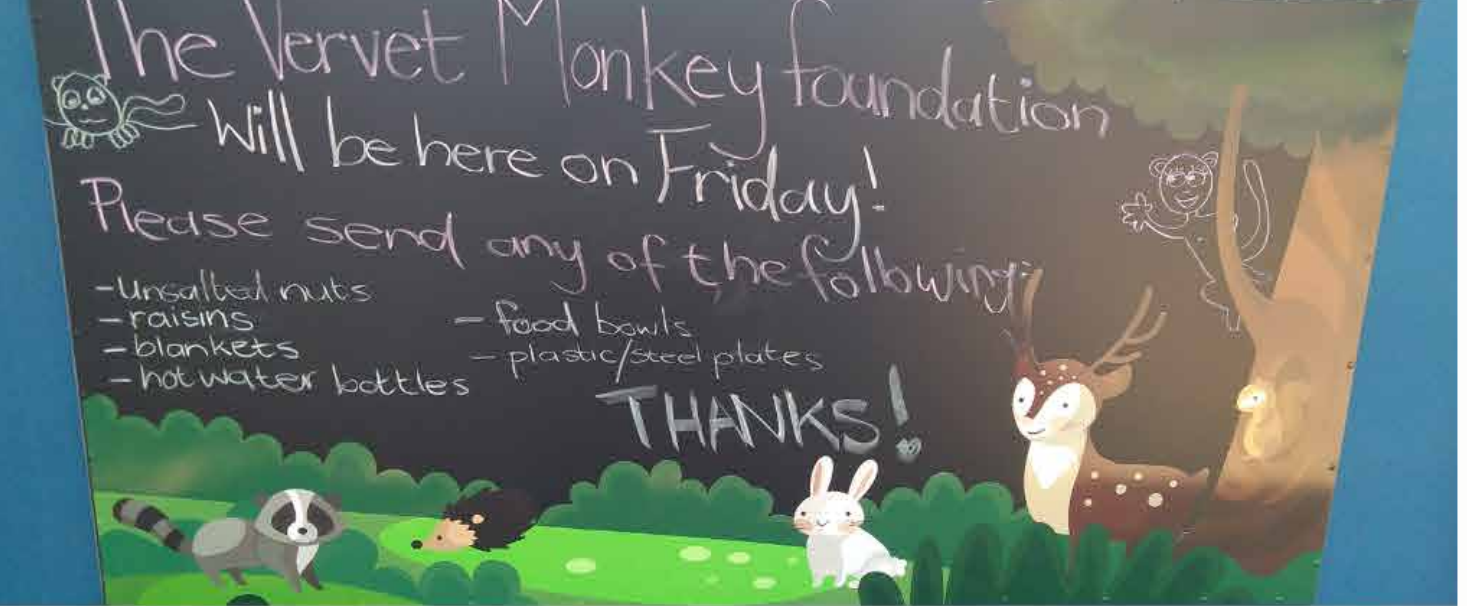 The Vervet Monkey foundation
Will be here on Friday!
Please send any of the following:
- Unsalted nuts
- raisins
- blankets
- hot water bottles
- food bowls
- plastic/steel plates
THANKS!